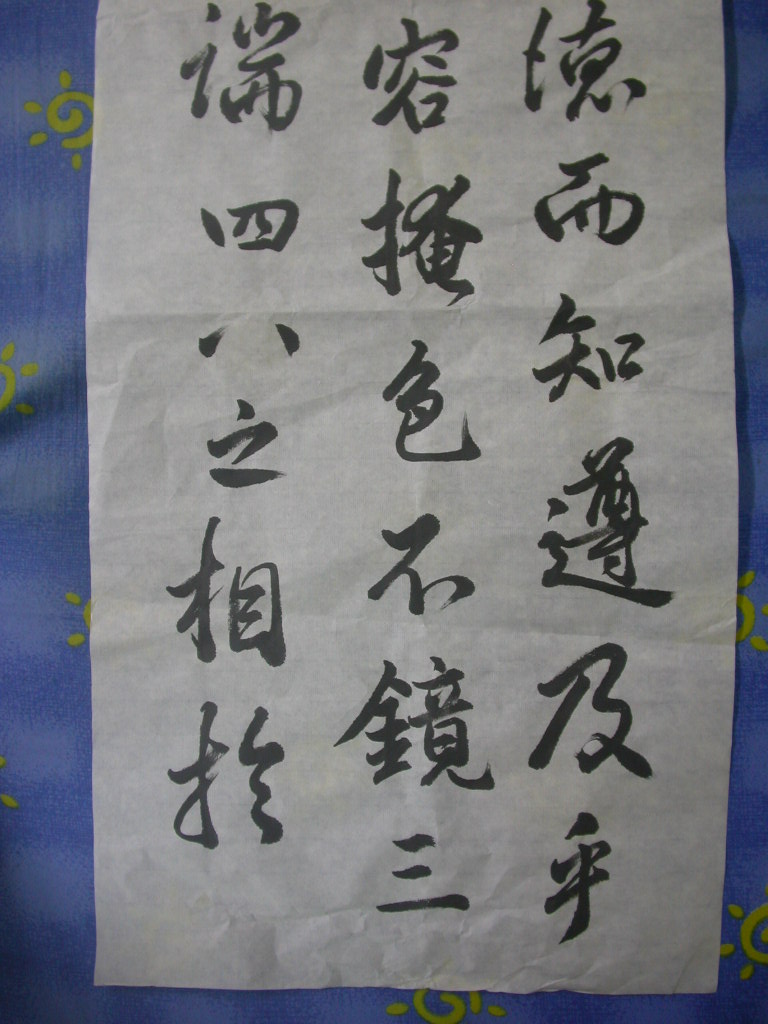 德而知遵及乎
容掩色不鏡三
端四八之相於